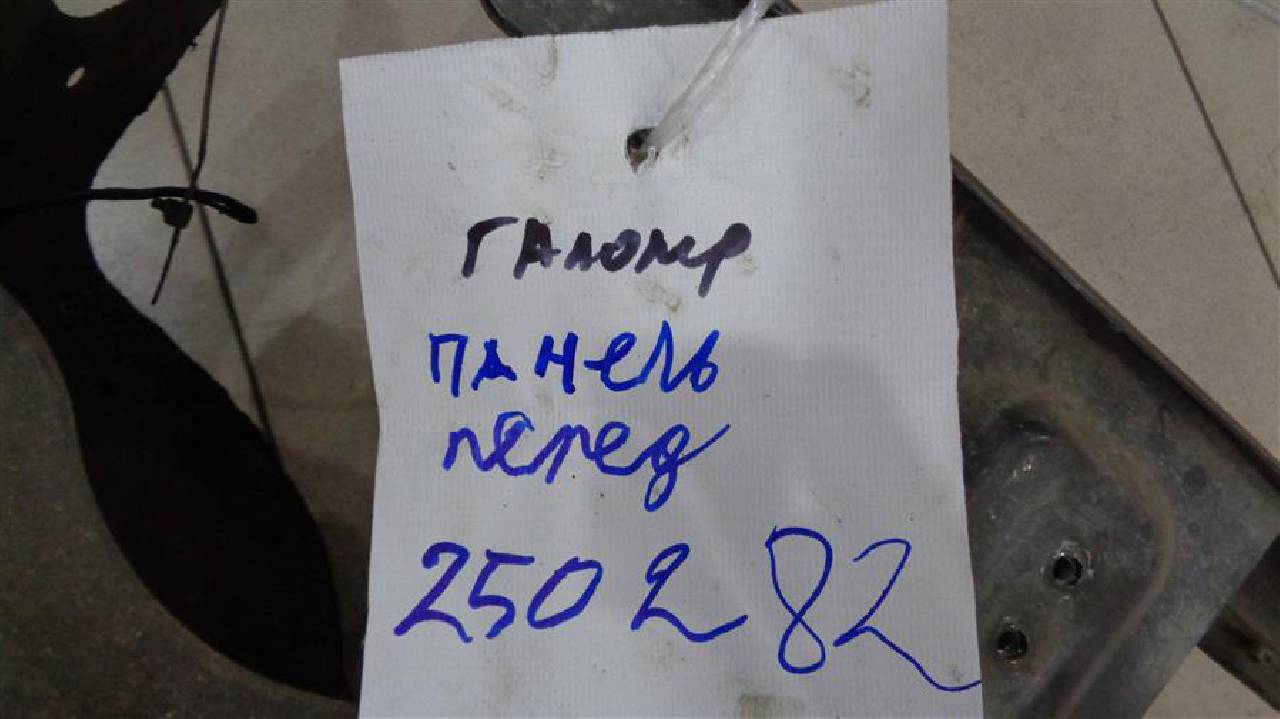 Галопер
панель
перед
250282